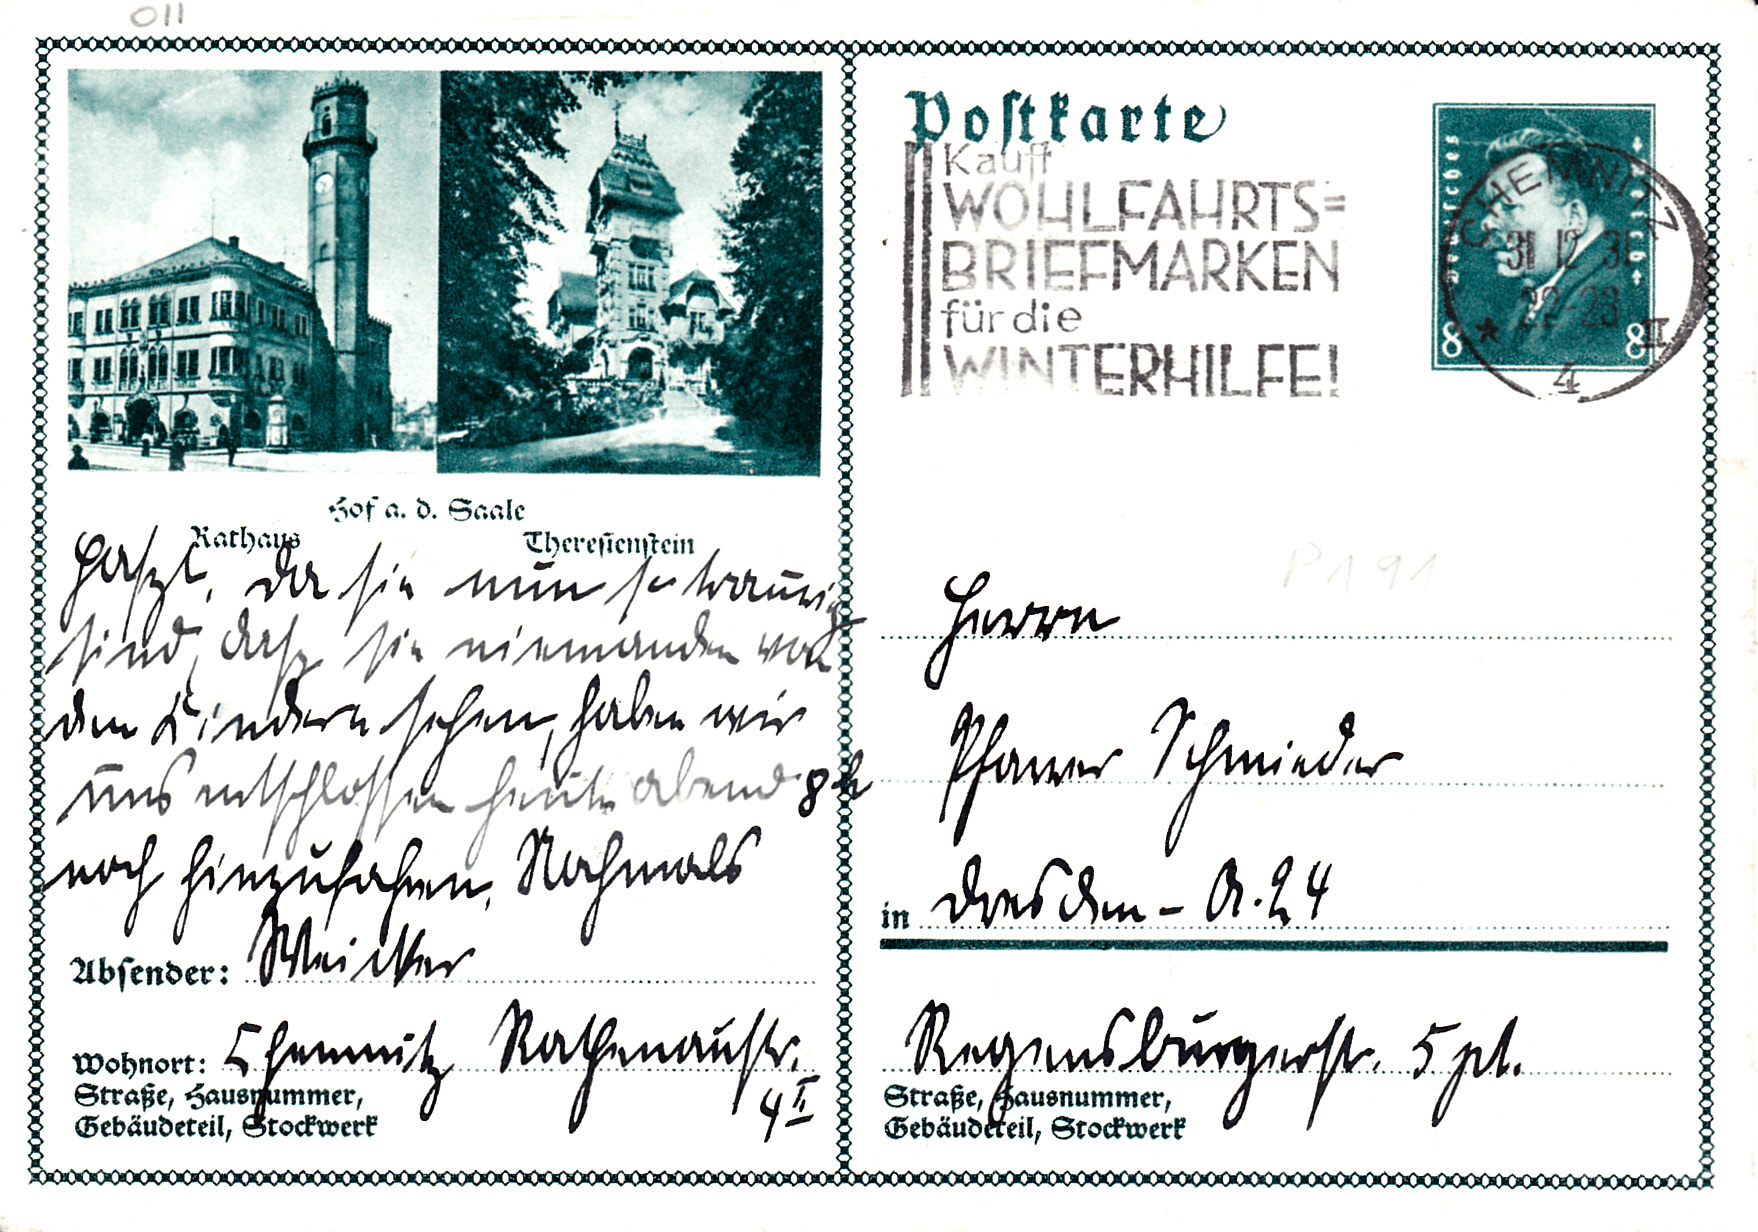 011
Hof a. d. Saale
Rathaus
Theresienstein
paßt. Da sie nun so traurig
sind, daß sie niemanden von
den Kindern sehen, haben wir
uns entschlossen heute abend 8 h
noch hinzufahren. Nochmals
Absender: Weicker
Wohnort: Chemnitz Rathenaustr.
4 II
Straße, Hausnummer,
Gebäudeteil, Stockwerk
Postkarte
Kauft
WOHLFAHRTS=
BRIEFMARKEN
für die
WINTERHILFE!
Deutsches Reich
8 8
CHEMNITZ
31 12 31
22-23
* II
4
P 191
Herrn
Pfarrer Schmieder
in Dresden - A. 24
Regensburgerstr. 5 pt.
Straße, Hausnummer,
Gebäudeteil, Stockwerk